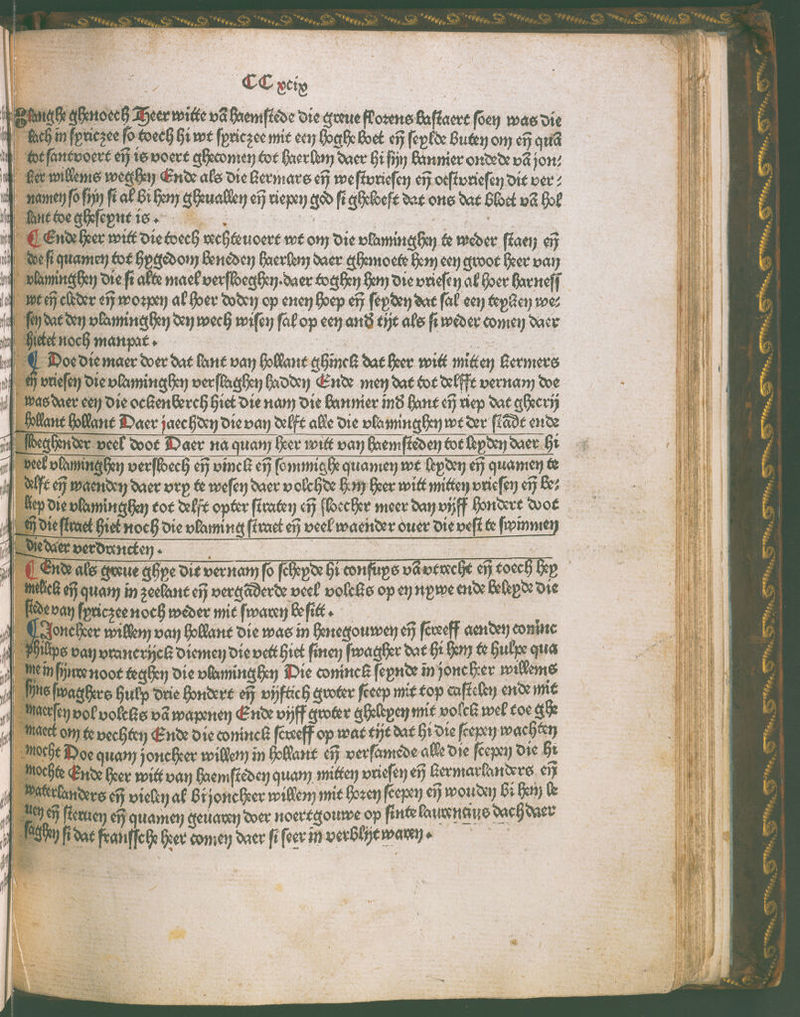 CC xcix
langhe ghenoech Heer witte vā haemstede die greue florens bastaert soen was die
lach in spriczee so toech hi wt spriczee mit een hoghe boet eñ seylde buten om eñ quā
tot santvoert eñ is voert ghecomen tot haerlem daer hi sijn bannier ondede vā jon⸗
ker willems weghen Ende als die kermars eñ westvriesen eñ oestvriesen dit ver⸗
namen so sijn si al bi hem gheuallen eñ riepen god si gheloeft dat ons dat bloet vā hol
lant toe gheseynt is .
¶ Ende heer witt die toech rechteuoert wt om die vlaminghen te weder staen eñ
doe si quamen tot hygedom beneden haerlem daer ghemoete hem een groot heer van
vlaminghen die si alte mael versloeghen. daer toghen hem die vriesen al hoer harness
wt eñ cleder eñ worpen al hoer doden op enen hoep eñ seyden dat sal een teyken we⸗
sen dat den vlaminghen den wech wisen sal op een and̄ tijt als si weder comen daer
hietet noch manpat .
¶ Doe die maer doer dat lant van hollant ghinck dat heer witt mitten kermers
eñ vriesen die vlaminghen verslaghen hadden Ende men dat tot delfft vernam doe
was daer een die ockenberch hiet die nam die bannier ind̄ hant eñ riep dat ghecrij
hollant hollant Daer jaechden die van delft alle die vlaminghen wt der stādt ende
sloeghender veel doot Daer na quam heer witt van haemsteden tot leyden daer hi
veel vlaminghen versloech eñ vinck eñ sommighe quamen wt leyden eñ quamen te
delft eñ waenden daer vry te wesen daer volchde hem heer witt mitten vriesen eñ be⸗
liep die vlaminghen tot delft opter straten eñ sloecher meer dan vijff hondert doot
eñ die straet hiet noch die vlaming straet eñ veel waender ouer die vest te swimmen
die daer verdrencten .
¶ Ende als greue ghye dit vernam so scheyde hi confuys vā vtrecht eñ toech hey
melick eñ quam in zeelant eñ vergāderde veel volcks op een nywe ende beleyde die
stede van spriczee noch weder mit swaren besitt .
¶ Joncheer willem van hollant die was in henegouwen eñ screeff aenden coninc
philips van vrancrijck diemen die vett hiet sinen swagher dat hi hem te hulpe qua
me in sijnre noot teghen die vlaminghen Die coninck seynde in joncheer willems
sijns swaghers hulp drie hondert eñ vijftich groter sceep mit top castelen ende mit
maersen vol volcks vā wapenen Ende vijff groter gheleyen mit volck wel toe ghe
maect om te vechten Ende die coninck screeff op wat tijt dat hi die scepen wachten
mocht Doe quam joncheer willem in hollant eñ versamēde alle die scepen die hi
mochte Ende heer witt van haemsteden quam mitten vriesen eñ kermarlanders eñ
waterlanders eñ vielen al bi joncheer willem mit horen scepen eñ wouden bi hem le
uen eñ steruen eñ quamen geuaren doer noertgouwe op sinte laurencius dach daer
saghen si dat franssche heer comen daer si seer in verblijt waren .